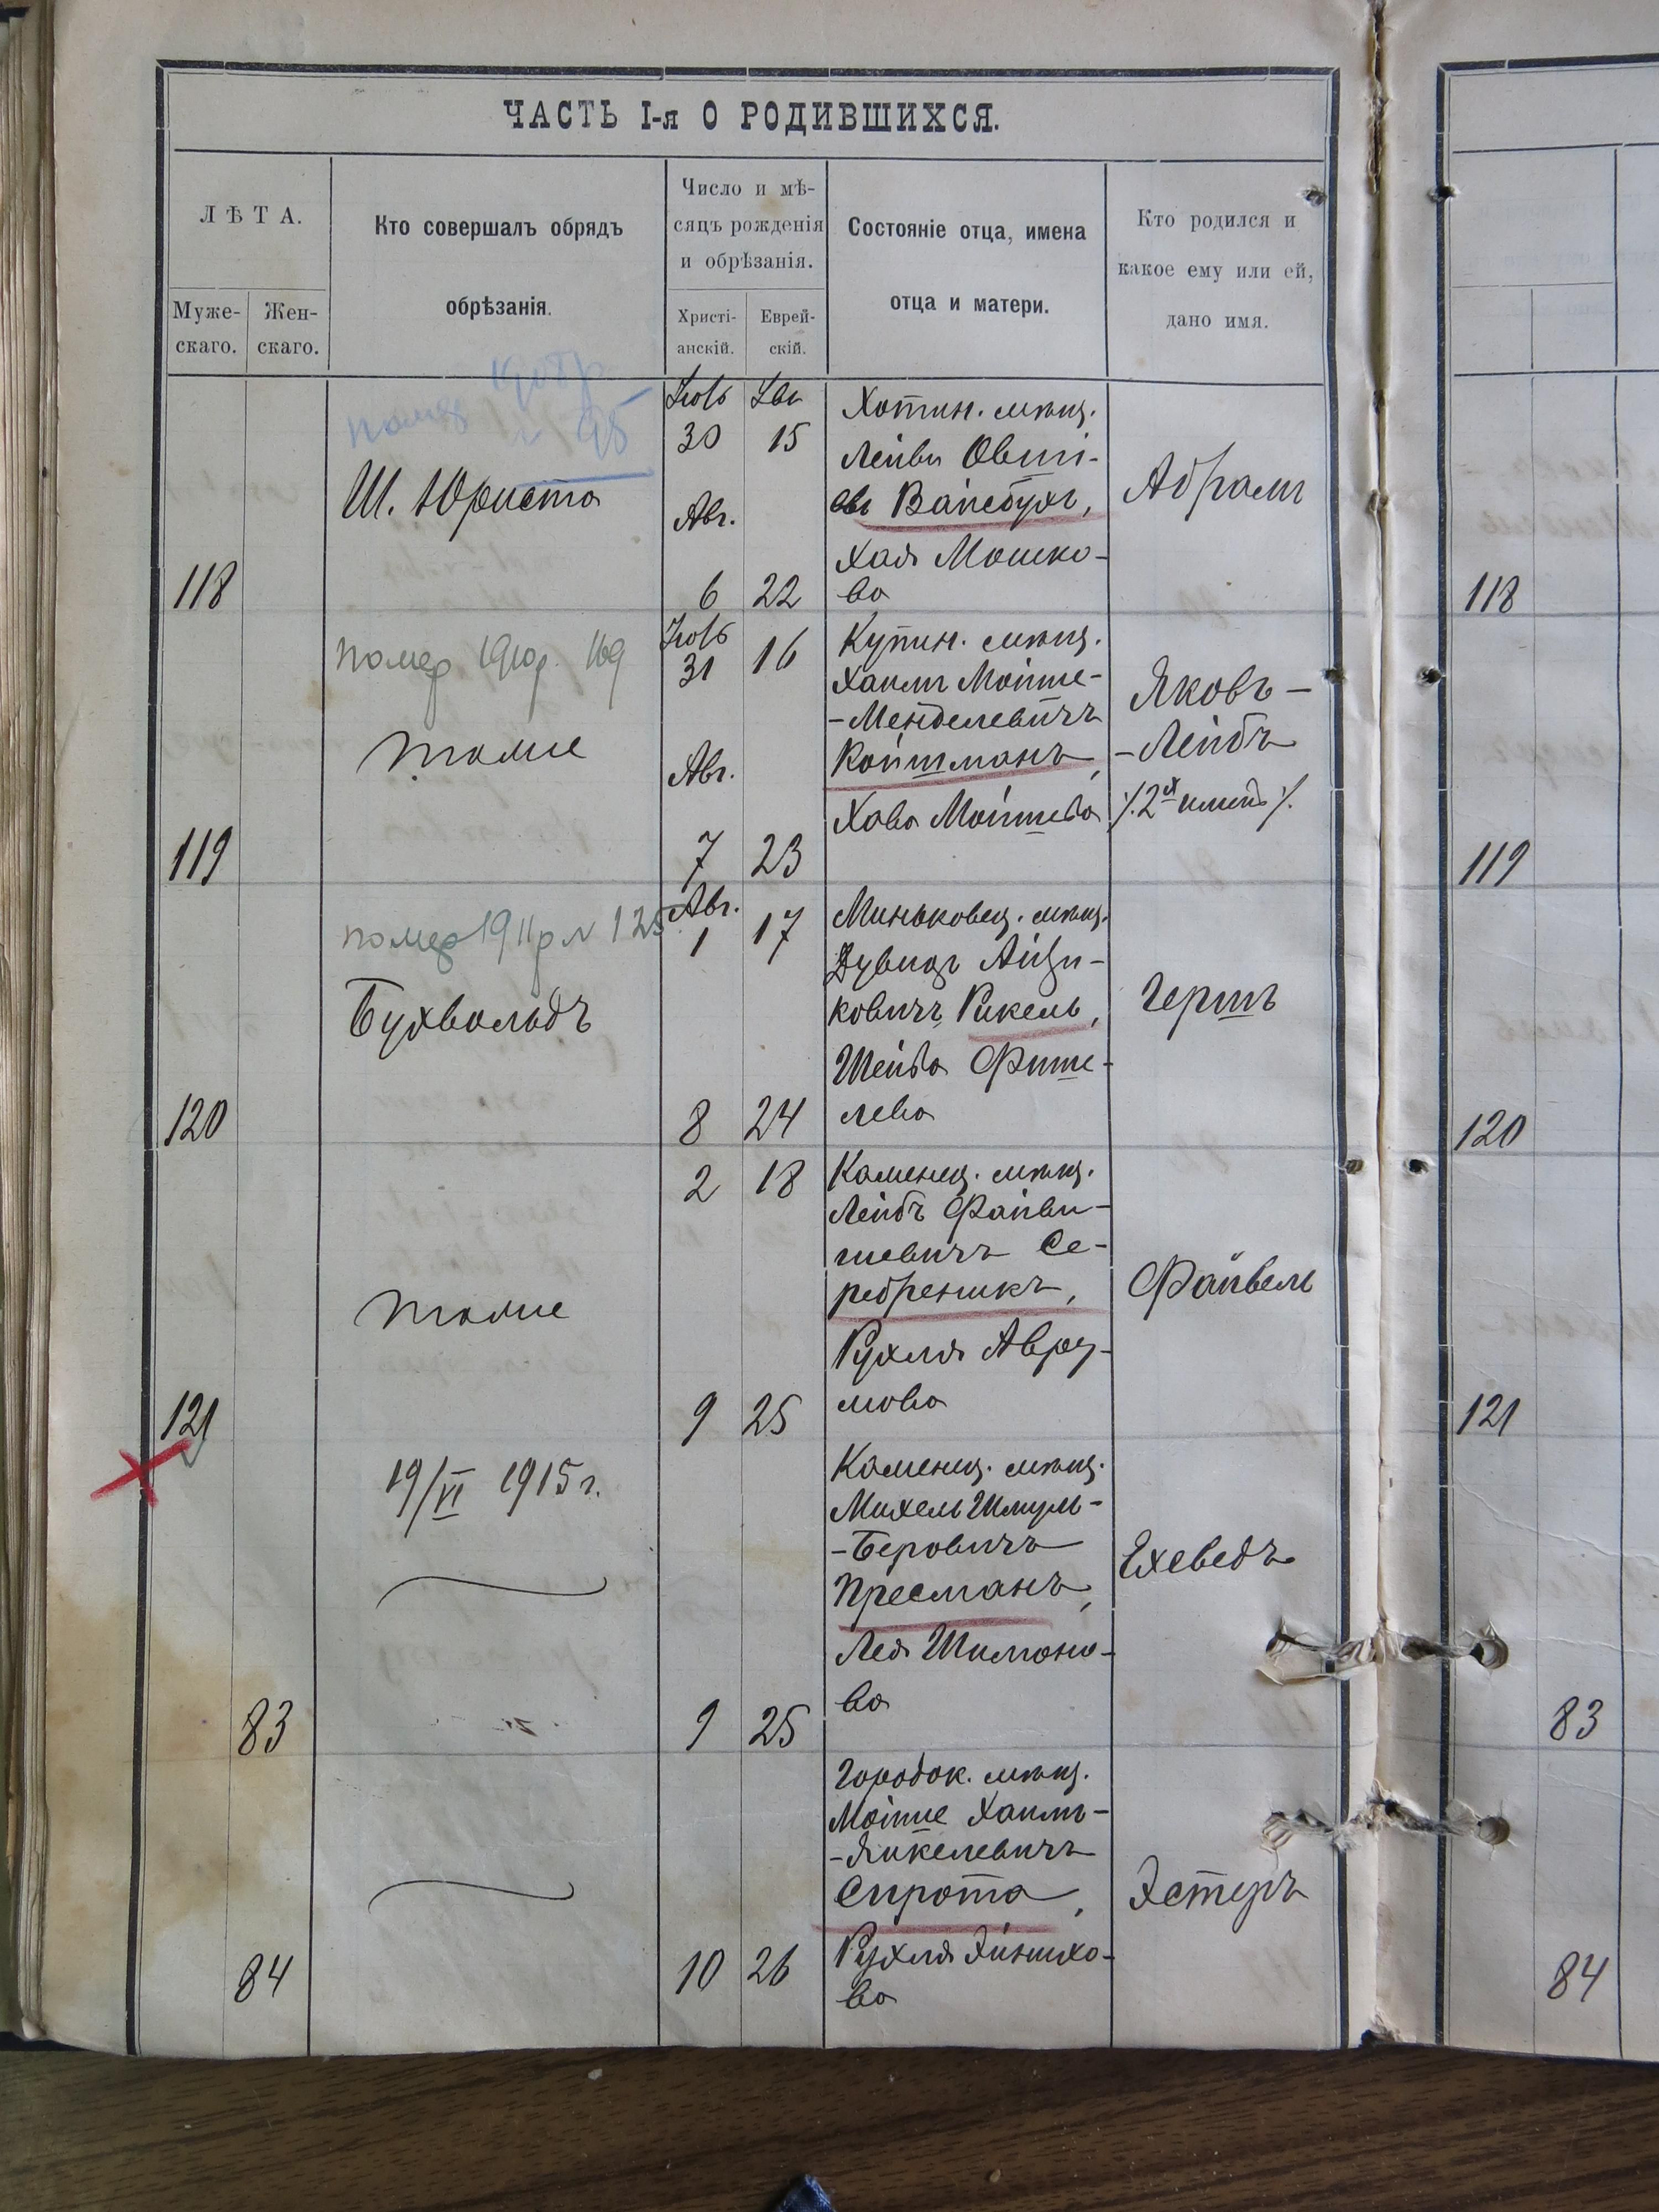 ЧАСТЬ I-я О РОДИВШИХСЯ.
ЛѢТА.
Муже-
скаго.
Жен-
скаго.
Кто совершалъ обрядъ
обрѣзанія.
Число и мѣ-
сяцъ рожденія
и обрѣзанія.
Христі-
анскій.
Еврей-
скій.
Состояніе отца, имена
отца и матери.
Кто родился и
какое ему или ей,
дано имя.
118
помер
№ 95
Ш. Юриста
30 15
Авг.
6 22
Хотин. мѣщ.
Лейви Овші-
евъ Вайсбухъ,
Хая Мошко-
ва
Абрамъ
118
119
помер 1910р. 169
тоже
31 16
Авг.
7 23
Купин. мѣщ.
Хаимъ Мойше-
-Менделевичъ
Койтманъ,
Хава Мойшева
Яковъ-
-Лейбъ
119
120
помер 1911р № 125
Бухвольдъ
Авг.
1 17
8 24
Миньковец. мѣщ.
Дувидъ Айзи-
ковичъ Рикель,
Шейва Фише-
лева
Гершъ
120
121
тоже
2 18
9 25
Каменец. мѣщ.
Лейбъ Файви-
шевичъ Се-
ребреникъ,
Рухля Авру-
мова
Файвель
121
83
19/VI 1915 г.
9 25
Каменец. мѣщ.
Михель Шмуль-
-Беровичъ
Пресманъ,
Лея Шимоно-
ва
Ехеведъ
83
84
10 26
Городок. мѣщ.
Мойше Хаимъ-
-Янкелевичъ
Сирота,
Рухля
ва
Эстеръ
84